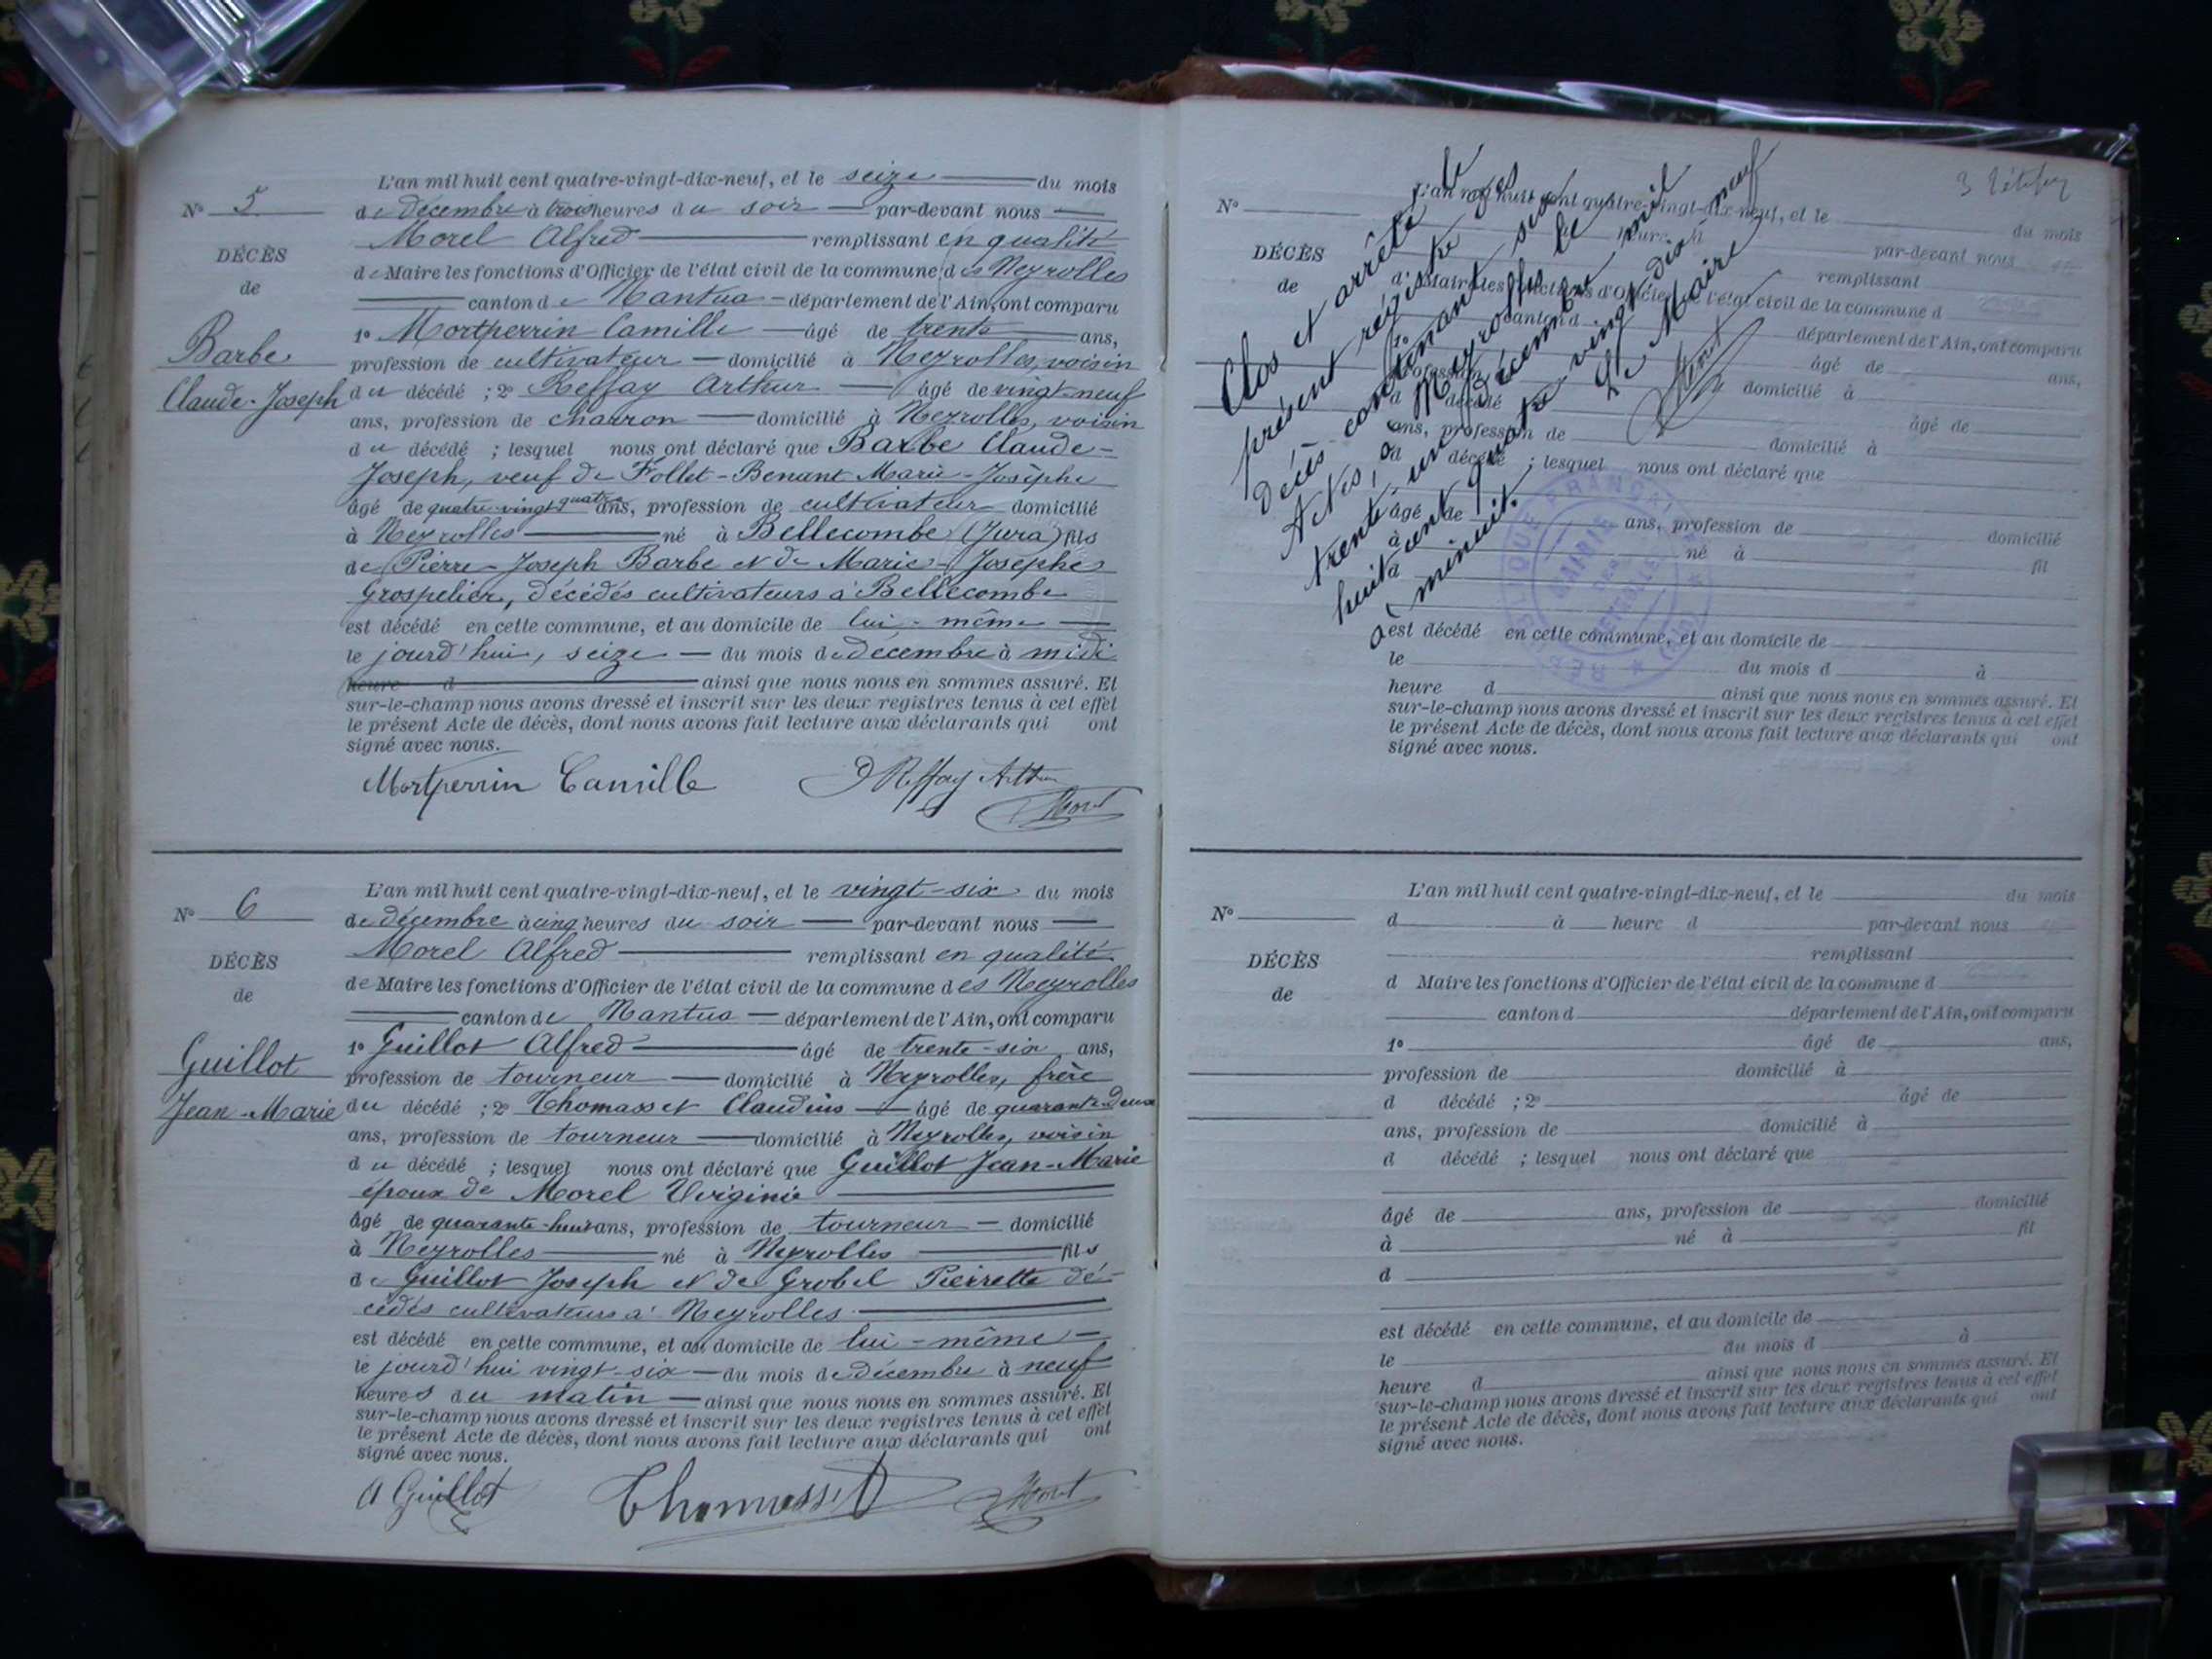 L'an mil huit cent quatre-vingt-dix-neuf, et le seize du mois
N° 5
de décembre à trois heures du soir par-devant nous
Morel Alfred remplissant en qualité
DÉCÈS
de Maire les fonctions d'Officier de l'état civil de la commune des Neyrolles
de
canton de Nantua département de l'Ain, ont comparu
1° Mortperrin Camille âgé de trente ans,
Barbe
profession de cultivateur domicilié à Neyrolles, voisin
Claude-Joseph
du décédé ; 2° Reffay Arthur âgé de vingt-neuf
ans, profession de charron domicilié à Neyrolles, voisin
du décédé ; lesquel nous ont déclaré que Barbe Claude-
Joseph, veuf de Follet-Benant Marie-Josèphe
âgé de quatre-vingt quatre ans, profession de cultivateur domicilié
à Neyrolles né à Bellecombe (Jura) fils
de Pierre-Joseph Barbe et de Marie-Josephe
Grospelier, décédés cultivateurs à Bellecombe
est décédé en cette commune, et au domicile de lui-même
le jourd'hui, seize du mois de décembre à midi
heure d ainsi que nous nous en sommes assuré. Et
sur-le-champ nous avons dressé et inscrit sur les deux registres tenus à cet effet
le présent Acte de décès, dont nous avons fait lecture aux déclarants qui ont
signé avec nous.
Mortperrin Camille Reffay Arthur
Morel
L'an mil huit cent quatre-vingt-dix-neuf, et le vingt-six du mois
N° 6
de décembre à cinq heures du soir par-devant nous
Morel Alfred remplissant en qualité
DÉCÈS
de Maire les fonctions d'Officier de l'état civil de la commune des Neyrolles
de
canton de Nantua département de l'Ain, ont comparu
1° Guillot Alfred âgé de trente-six ans,
Guillot
profession de tourneur domicilié à Neyrolles, frère
Jean-Marie
du décédé ; 2° Thomasset Claudius âgé de quarante-deux
ans, profession de tourneur domicilié à Neyrolles, voisin
du décédé ; lesquel nous ont déclaré que Guillot Jean-Marie
époux de Morel Virginie
âgé de quarante-huit ans, profession de tourneur domicilié
à Neyrolles né à Neyrolles fils
de Guillot Joseph et de Grobel Pierrette dé-
cédés cultivateurs à Neyrolles
est décédé en cette commune, et au domicile de lui-même
le jourd'hui vingt-six du mois de décembre à neuf
heures du matin ainsi que nous nous en sommes assuré. Et
sur-le-champ nous avons dressé et inscrit sur les deux registres tenus à cet effet
le présent Acte de décès, dont nous avons fait lecture aux déclarants qui ont
signé avec nous.
A Guillot Thomasset Morel
L'an mil huit cent quatre-vingt-dix-neuf, et le du mois
N°
heure par-devant nous
DÉCÈS
remplissant
de
d Maire les fonctions d'Officier de l'état civil de la commune d
canton d département de l'Ain, ont comparu
1° âgé de ans,
profession domicilié à
d décédé âgé de
ans, profession de domicilié à
d décédé ; lesquel nous ont déclaré que
âgé de ans, profession de domicilié
à né à fil
est décédé en cette commune, et au domicile de
le du mois d à
heure d ainsi que nous nous en sommes assuré. Et
sur-le-champ nous avons dressé et inscrit sur les deux registres tenus à cet effet
le présent Acte de décès, dont nous avons fait lecture aux déclarants qui ont
signé avec nous.
Clos et arrêté le
présent registre des
Décès contenant six
Actes, à Neyrolles le
trente-un Décembre mil
huit cent quatre vingt dix neuf
à minuit.
Le Maire
Morel
RÉPUBLIQUE FRANÇAISE
MAIRIE
DES
NEYROLLES
L'an mil huit cent quatre-vingt-dix-neuf, et le du mois
N°
d à heure d par-devant nous
remplissant
DÉCÈS
d Maire les fonctions d'Officier de l'état civil de la commune d
de
canton d département de l'Ain, ont comparu
1° âgé de ans,
profession de domicilié à
d décédé ; 2° âgé de
ans, profession de domicilié à
d décédé ; lesquel nous ont déclaré que
âgé de ans, profession de domicilié
à né à fil
d
est décédé en cette commune, et au domicile de
le du mois d à
heure d ainsi que nous nous en sommes assuré. Et
sur-le-champ nous avons dressé et inscrit sur les deux registres tenus à cet effet
le présent Acte de décès, dont nous avons fait lecture aux déclarants qui ont
signé avec nous.